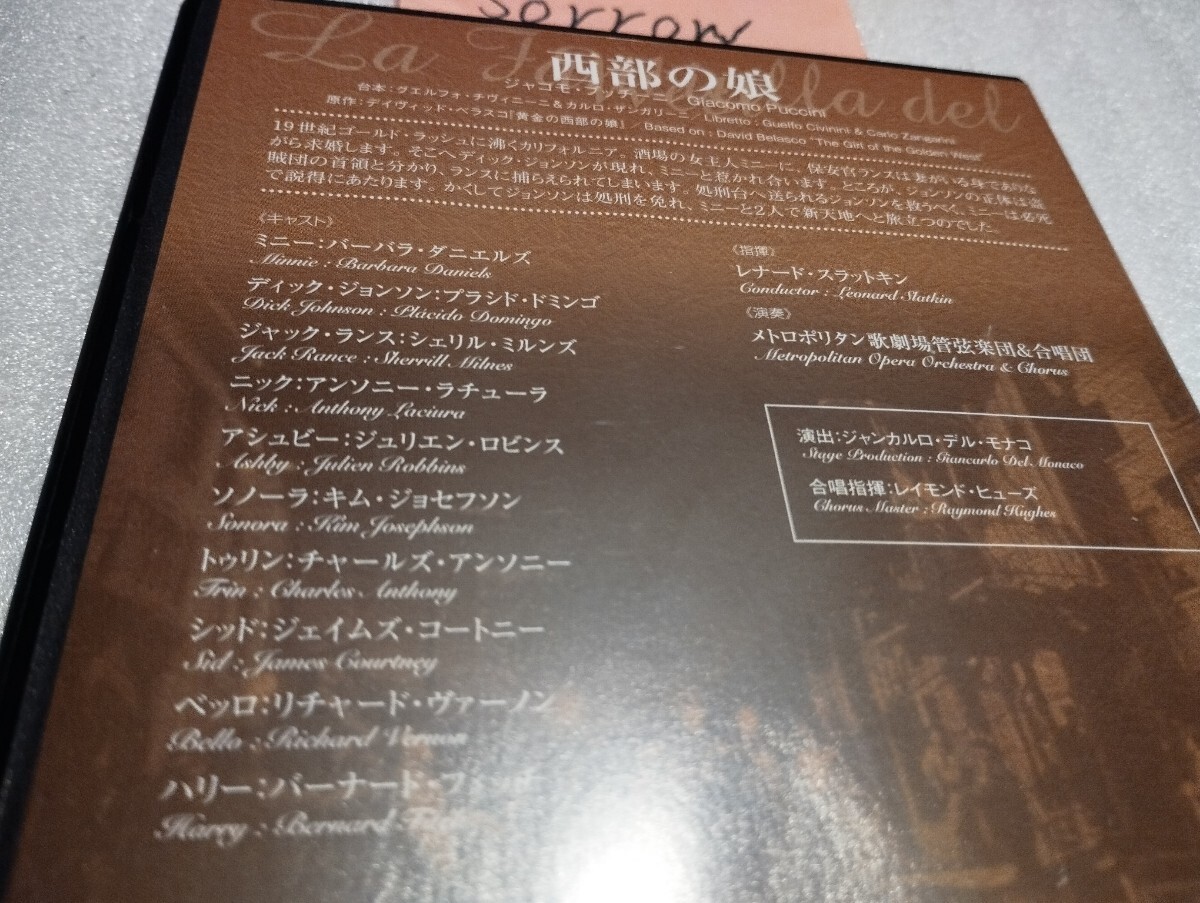 sorrow
La Fanciulla del
西部の娘
ジャコモ・プッチーニ／Giacomo Puccini
台本:グエルフォ・チヴィニーニ&カルロ・ザンガリーニ／Libretto : Guelfo Civinini & Carlo Zangarini
原作:デイヴィッド・ベラスコ『黄金の西部の娘』／Based on : David Belasco "The Girl of the Golden West"
19世紀ゴールド・ラッシュに沸くカリフォルニア。酒場の女主人ミニーに、保安官ランスは妻がいる身でありな
がら求婚します。そこへディック・ジョンソンが現れ、ミニーと惹かれ合います。ところが、ジョンソンの正体は盗
賊団の首領と分かり、ランスに捕らえられてしまいます。処刑台へ送られるジョンソンを救うべく、ミニーは必死
で説得にあたります。かくしてジョンソンは処刑を免れ、ミニーと2人で新天地へと旅立つのでした。
《キャスト》
ミニー:バーバラ・ダニエルズ
Minnie : Barbara Daniels
ディック・ジョンソン:プラシド・ドミンゴ
Dick Johnson : Plácido Domingo
ジャック・ランス:シェリル・ミルンズ
Jack Rance : Sherrill Milnes
ニック:アンソニー・ラチューラ
Nick : Anthony Laciura
アシュビー:ジュリエン・ロビンス
Ashby : Julien Robbins
ソノーラ:キム・ジョセフソン
Sonora : Kim Josephson
トゥリン:チャールズ・アンソニー
Trin : Charles Anthony
シッド:ジェイムズ・コートニー
Sid : James Courtney
ベッロ:リチャード・ヴァーノン
Bello : Richard Vernon
ハリー:バーナード・
Harry : Bernard
《指揮》
レナード・スラットキン
Conductor : Leonard Slatkin
《演奏》
メトロポリタン歌劇場管弦楽団&合唱団
Metropolitan Opera Orchestra & Chorus
演出:ジャンカルロ・デル・モナコ
Stage Production : Giancarlo Del Monaco
合唱指揮:レイモンド・ヒューズ
Chorus Master : Raymond Hughes